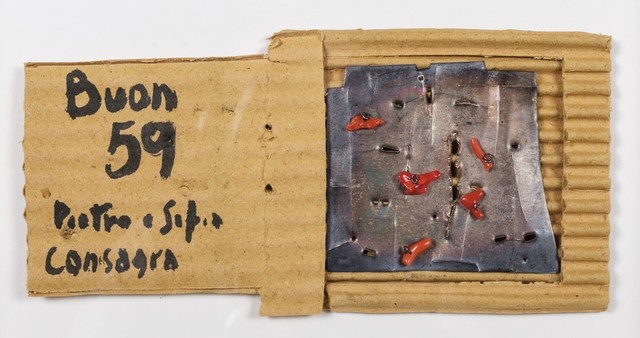 Buon
59
Pietro e Sofia
Consagra